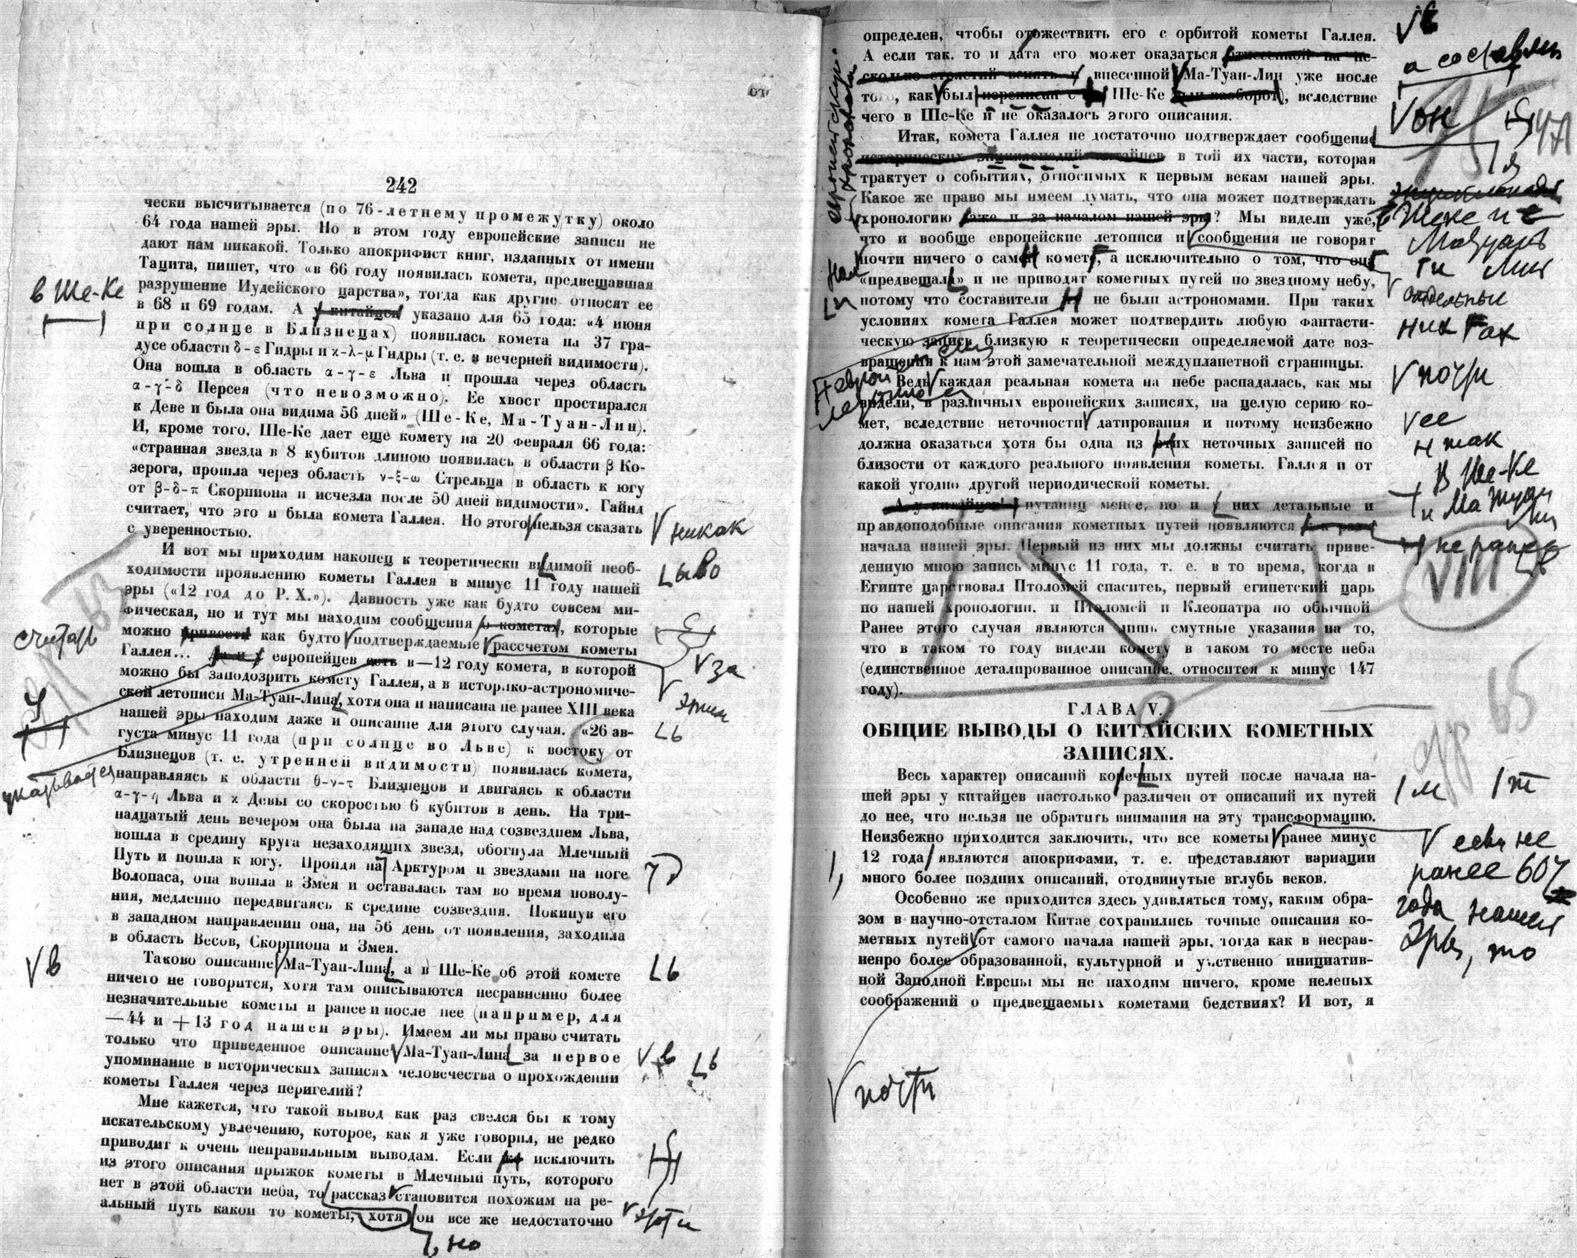 242
чески высчитывается (по 76-летнему промежутку) около
64 года нашей эры. Но в этом году европейские записи не
дают нам никакой. Только апокрифист книг, изданных от имени
Тацита, пишет, что «в 66 году появилась комета, предвещавшая
разрушение Иудейского царства», тогда как другие относят ее
в Ше-Ке
в 68 и 69 годам. А у китайцев указано для 65 года: «4 июня
при солнце в Близнецах) появилась комета на 37 гра-
дусе области δ-ε Гидры и χ-λ-μ Гидры (т. е. в вечерней видимости).
Она вошла в область α-γ-ε Льва и прошла через область
α-γ-δ Персея (что невозможно). Ее хвост простирался
к Деве и была она видима 56 дней» (Ше-Ке, Ма-Туан-Лин).
И, кроме того, Ше-Ке дает еще комету на 20 февраля 66 года:
«странная звезда в 8 кубитов длиною появилась в области β Ко-
зерога, прошла через область ν-ξ-ω Стрельца в область к югу
от β-δ-π Скорпиона и исчезла после 50 дней видимости». Гайнд
считает, что это и была комета Галлея. Но этого нельзя сказать
никак
с уверенностью.
И вот мы приходим наконец к теоретически видимой необ-
ходимости проявлению кометы Галлея в минус 11 году нашей
эры («12 год до Р. Х.»). Давность уже как будто совсем ми-
фическая, но и тут мы находим сообщения о кометах, которые
считать
можно привести как будто подтверждаемые рассчетом кометы
за
Галлея... европейцев есть в —12 году комета, в которой
можно бы заподозрить комету Галлея, а в историко-астрономиче-
этим
ской летописи Ма-Туан-Лина, хотя она и написана не ранее XIII века
нашей эры находим даже и описание для этого случая. «26 ав-
густа минус 11 года (при солнце во Льве) к востоку от
Близнецов (т. е. утренней видимости) появилась комета,
указывается
направляясь к области θ-ν-τ Близнецов и двигаясь к области
α-γ-η Льва и χ Девы со скоростью 6 кубитов в день. На три-
надцатый день вечером она была на западе над созвездием Льва,
вошла в средину круга незаходящих звезд, обогнула Млечный
Путь и пошла к югу. Пройдя над Арктуром и звездами на ноге
Волопаса, она вошла в Змея и оставалась там во время новолу-
ния, медленно передвигаясь к средине созвездия. Покинув его
в западном направлении она, на 56 день от появления, заходила
в область Весов, Скорпиона и Змея.
в
Таково описание Ма-Туан-Лина, а в Ше-Ке об этой комете
ь
ничего не говорится, хотя там описываются несравненно более
незначительные кометы и ранее и после нее (например, для
—44 и +13 год нашей эры). Имеем ли мы право считать
только что приведенное описание Ма-Туан-Лина за первое
в ь
упоминание в исторических записях человечества о прохождении
кометы Галлея через перигелий?
Мне кажется, что такой вывод как раз свелся бы к тому
искательскому увлечению, которое, как я уже говорил, не редко
приводит к очень неправильным выводам. Если исключить
из этого описания прыжок кометы в Млечный путь, которого
нет в этой области неба, то рассказ становится похожим на ре-
альный путь какой то кометы, хотя он все же недостаточно
, но
определен, чтобы отожествить его с орбитой кометы Галлея.
А если так. то и дата его может оказаться отнесенной на не-
сколько столетий вспять и внесенной Ма-Туан-Лин уже после
того, как был переписан с Ше-Ке или наоборот), вследствие
он
чего в Ше-Ке и не оказалось этого описания.
Итак, комета Галлея не достаточно подтверждает сообщение
исторических энциклопедий китайцев в той их части, которая
трактует о событиях, относимых к первым векам нашей эры.
Какое же право мы имеем думать, что она может подтверждать
хронологию даже и за началом нашей эры? Мы видели уже,
что и вообще европейские летописи и сообщения не говорят
почти ничего о самой комете, а исключительно о том, что она
«предвещала» и не приводят кометных путей по звездному небу,
отдельные
потому что составители не были астрономами. При таких
условиях комета Галлея может подтвердить любую фантасти-
ческую запись близкую к теоретически определяемой дате воз-
вращения к нам этой замечательной междупланетной странницы.
почти
Ведь каждая реальная комета на небе распадалась, как мы
видели, в различных европейских записях, на целую серию ко-
мет, вследствие неточности датирования и потому неизбежно
ее
должна оказаться хотя бы одна из этих неточных записей по
так
близости от каждого реального появления кометы. Галлея и от
какой угодно другой периодической кометы.
В Ше-Ке
А у китайцев путаниц менее, но и у них детальные и
правдоподобные описания кометных путей появляются как раз с
не ранее
начала нашей эры. Первый из них мы должны считать приве-
денную мною запись минус 11 года, т. е. в то время, когда в
VIII
Египте царствовал Птоломей спаситель, первый египетский царь
по нашей хронологии. и Птоломей и Клеопатра по обычной
Ранее этого случая являются лишь смутные указания на то,
что в таком то году видели комету в таком то месте неба
(единственное деталированное описание, относится к минус 147
году).
ГЛАВА V.
ОБЩИЕ ВЫВОДЫ О КИТАЙСКИХ КОМЕТНЫХ
ЗАПИСЯХ.
Весь характер описаний конечных путей после начала на-
шей эры у китайцев настолько различен от описаний их путей
м т
до нее, что нельзя не обратить внимания на эту трансформацию.
Неизбежно приходится заключить, что все кометы ранее минус
если не
12 года являются апокрифами, т. е. представляют вариации
ранее 607
много более поздних описаний, отодвинутые вглубь веков.
года нашей
эры, то
Особенно же приходится здесь удивляться тому, каким обра-
зом в научно-отсталом Китае сохранились точные описания ко-
метных путей от самого начала нашей эры, тогда как в несрав-
ненро более образованной, культурной и умственно инициатив-
ной Западной Европы мы не находим ничего, кроме нелепых
соображений о предвещаемых кометами бедствиях? И вот, я
почти